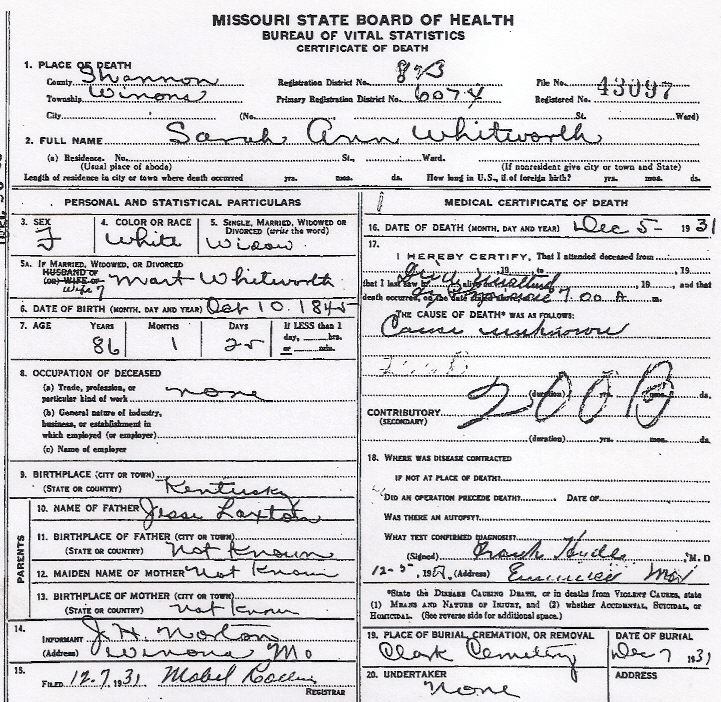 MISSOURI STATE BOARD OF HEALTH
BUREAU OF VITAL STATISTICS
CERTIFICATE OF DEATH
1. PLACE OF DEATH
County Shannon Registration District No. 873 File No. 43097
Township Winona Primary Registration District No. 6074 Registered No.
City (No. St. Ward)
2. FULL NAME Sarah Ann Whitworth
(a) Residence. No. St., Ward.
(Usual place of abode) (If nonresident give city or town and State)
Length of residence in city or town where death occurred yrs. mos. ds. How long in U.S., if of foreign birth? yrs. mos. ds.
PERSONAL AND STATISTICAL PARTICULARS
3. SEX 4. COLOR OR RACE 5. SINGLE, MARRIED, WIDOWED OR
DIVORCED (write the word)
F White Widow
5A. IF MARRIED, WIDOWED, OR DIVORCED
HUSBAND OF
(OR) WIFE OF Mart Whitworth
Wife of
6. DATE OF BIRTH (MONTH, DAY AND YEAR) Oct 10. 1845
7. AGE YEARS MONTHS DAYS If LESS than 1
day, hrs.
86 1 25 or min.
8. OCCUPATION OF DECEASED
(a) Trade, profession, or
particular kind of work none
(b) General nature of industry,
business, or establishment in
which employed (or employer)
(c) Name of employer
9. BIRTHPLACE (CITY OR TOWN)
(STATE OR COUNTRY) Kentusky
PARENTS
10. NAME OF FATHER Jesse Laxton
11. BIRTHPLACE OF FATHER (CITY OR TOWN)
(STATE OR COUNTRY) Not Known
12. MAIDEN NAME OF MOTHER Not Known
13. BIRTHPLACE OF MOTHER (CITY OR TOWN)
(STATE OR COUNTRY) Not Known
14. INFORMANT J. H. Norton
(Address) Winona Mo
15. FILED 12.7, 1931 Mabel
REGISTRAR
MEDICAL CERTIFICATE OF DEATH
16. DATE OF DEATH (MONTH, DAY AND YEAR) Dec 5- 1931
17.
I HEREBY CERTIFY, That I attended deceased from
19 to 19
that I last saw h alive on 19 and that
death occurred, on the date 7.00 A m.
THE CAUSE OF DEATH* WAS AS FOLLOWS:
Cause unknown
200B
(duration) yrs. mos. ds.
CONTRIBUTORY
(SECONDARY)
(duration) yrs. mos. ds.
18. WHERE WAS DISEASE CONTRACTED
IF NOT AT PLACE OF DEATH?
DID AN OPERATION PRECEDE DEATH? DATE OF
WAS THERE AN AUTOPSY?
WHAT TEST CONFIRMED DIAGNOSIS?
(Signed) Frank Hyde, M. D
12-5-, 19 (Address) Eminence Mo
*State the DISEASE CAUSING DEATH, or in deaths from VIOLENT CAUSES, state
(1) MEANS AND NATURE OF INJURY, and (2) whether ACCIDENTAL, SUICIDAL, or
HOMICIDAL. (See reverse side for additional space.)
19. PLACE OF BURIAL, CREMATION, OR REMOVAL DATE OF BURIAL
Clark Cemetery Dec 7 1931
20. UNDERTAKER ADDRESS
None